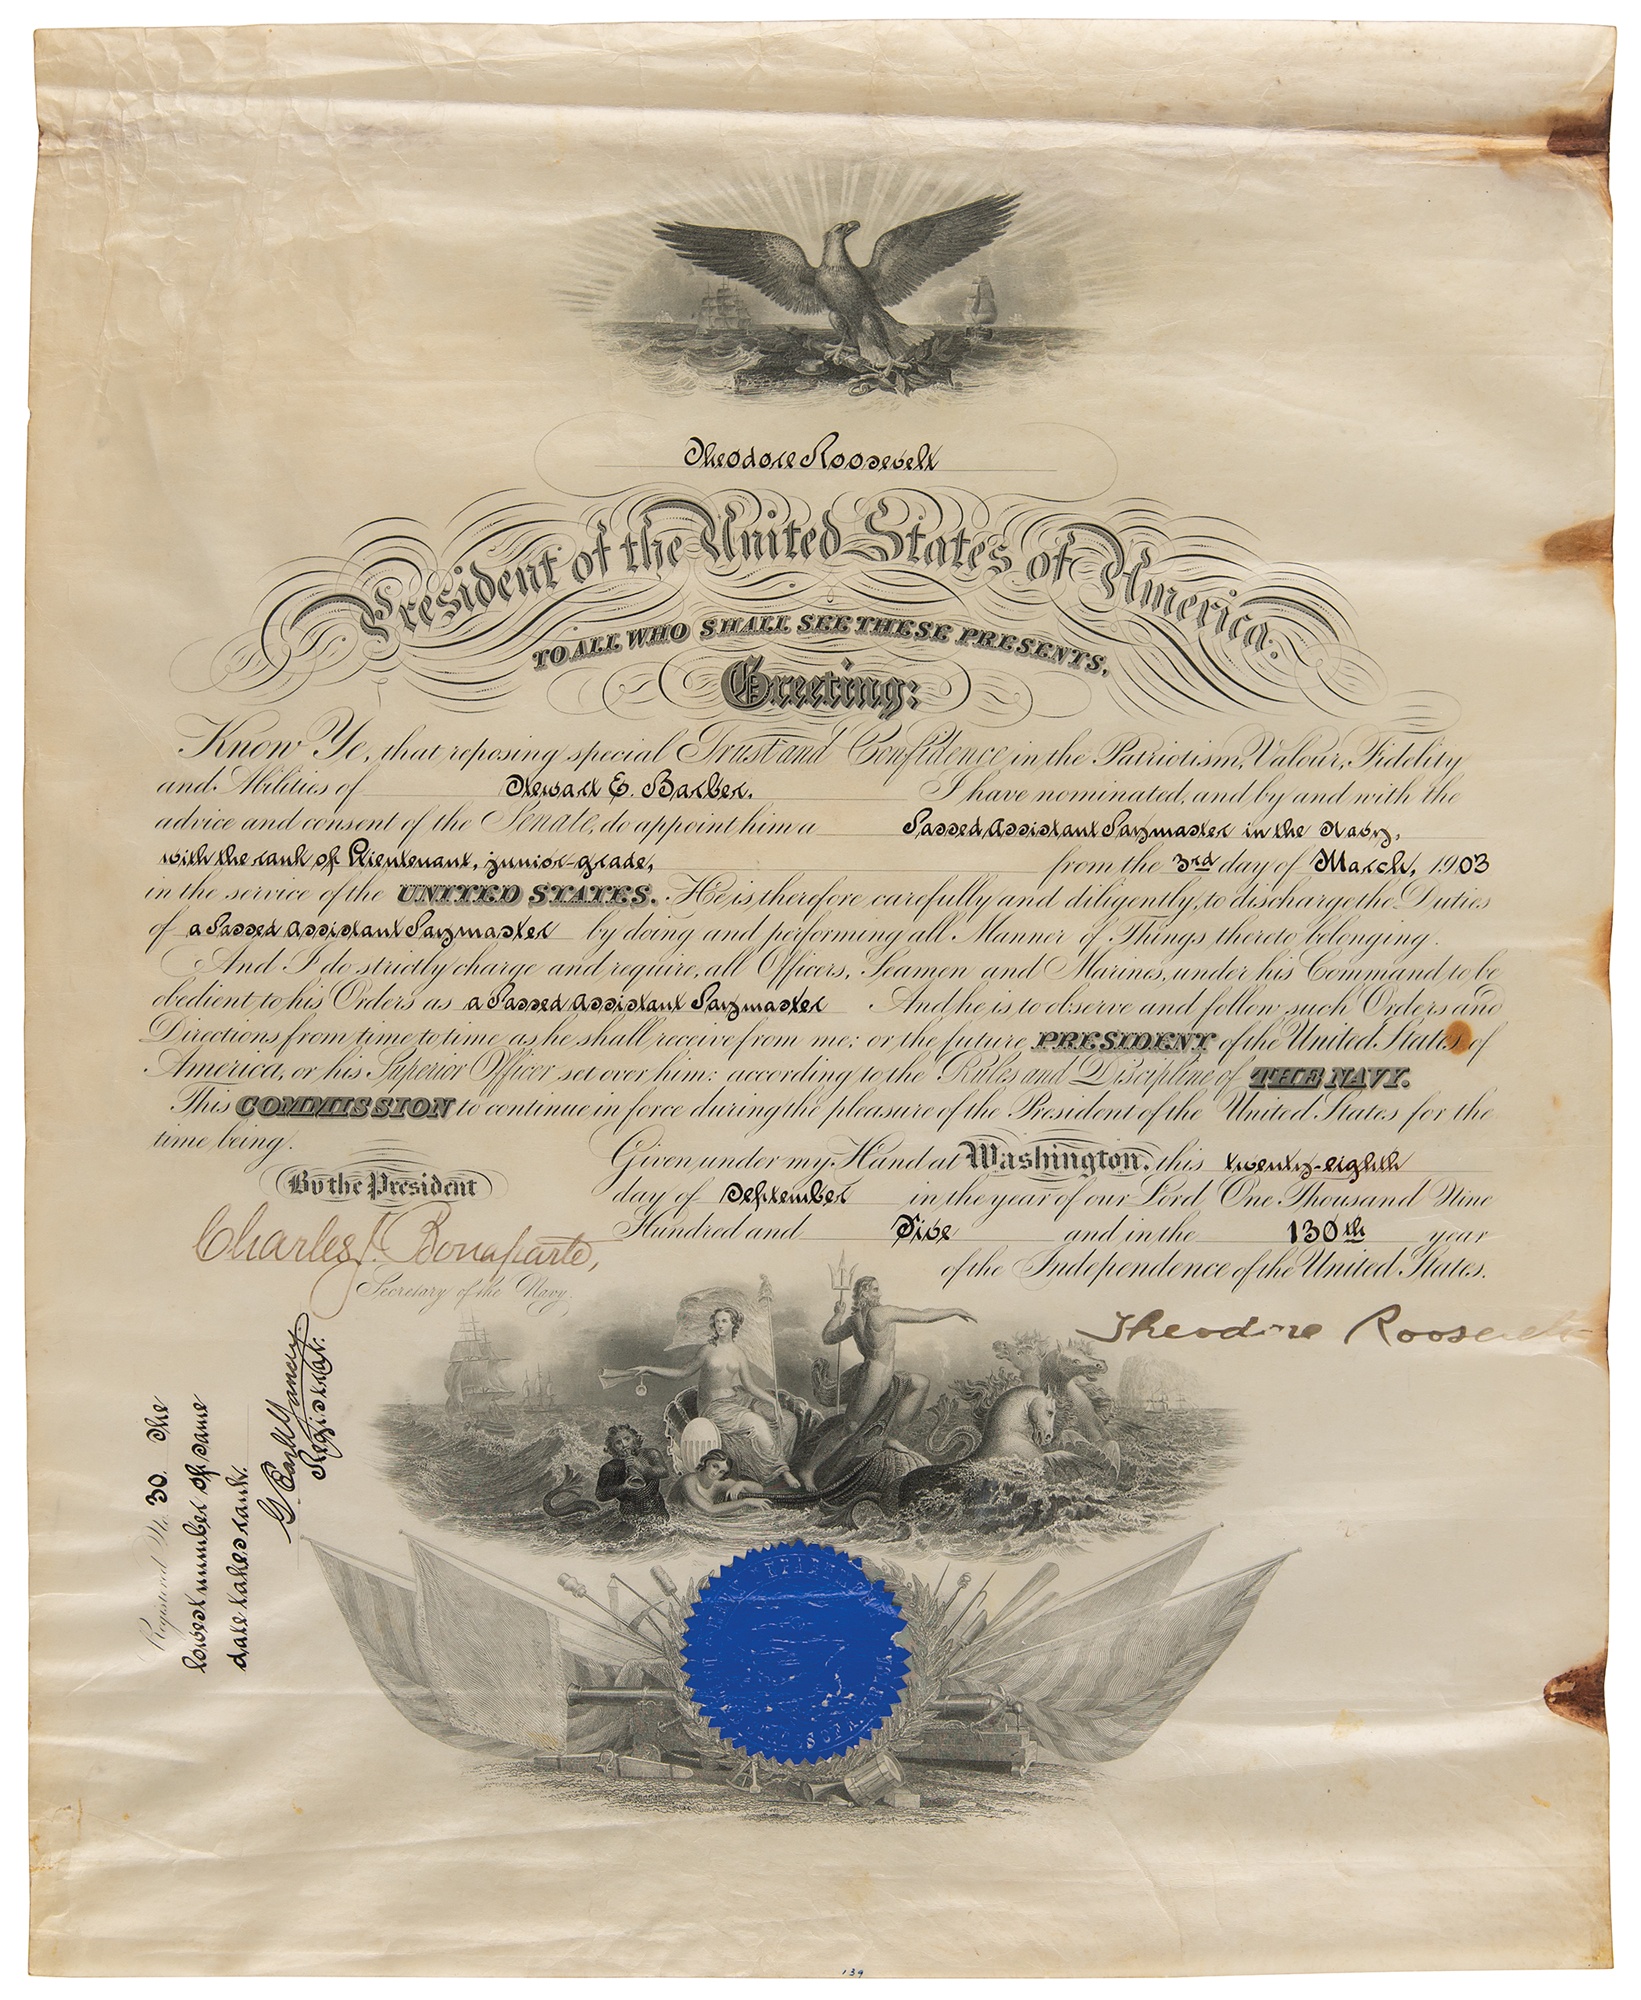 Theodore Roosevelt
President of the United States of America.
TO ALL WHO SHALL SEE THESE PRESENTS,
Greeting:
Know Ye, that reposing special Trust and Confidence in the Patriotism, Valour, Fidelity
and Abilities of Stewart E. Barber. I have nominated, and by and with the
advice and consent of the Senate, do appoint him a Passed Assistant Paymaster in the Navy,
with the rank of Lieutenant, junior-grade, from the 3rd day of March, 1903
in the service of the UNITED STATES. He is therefore carefully and diligently, to discharge the Duties
of a Passed Assistant Paymaster by doing and performing all Manner of Things thereto belonging.
And I do strictly charge and require, all Officers, Seamen and Marines, under his Command to be
obedient to his Orders as a Passed Assistant Paymaster And he is to observe and follow such Orders and
Directions from time to time as he shall receive from me; or the future PRESIDENT of the United States of
America, or his Superior Officer set over him: according to the Rules and Discipline of THE NAVY.
This COMMISSION to continue in force during the pleasure of the President of the United States for the
time being.
Given under my Hand at Washington, this twenty-eighth
day of September in the year of our Lord, One Thousand Nine
Hundred and Five and in the 130th year
of the Independence of the United States.
By the President
Charles J. Bonaparte,
Secretary of the Navy.
Theodore Roosevelt
Registered No. 30 The
lowest number of same
date takes rank.
Registrar.
139